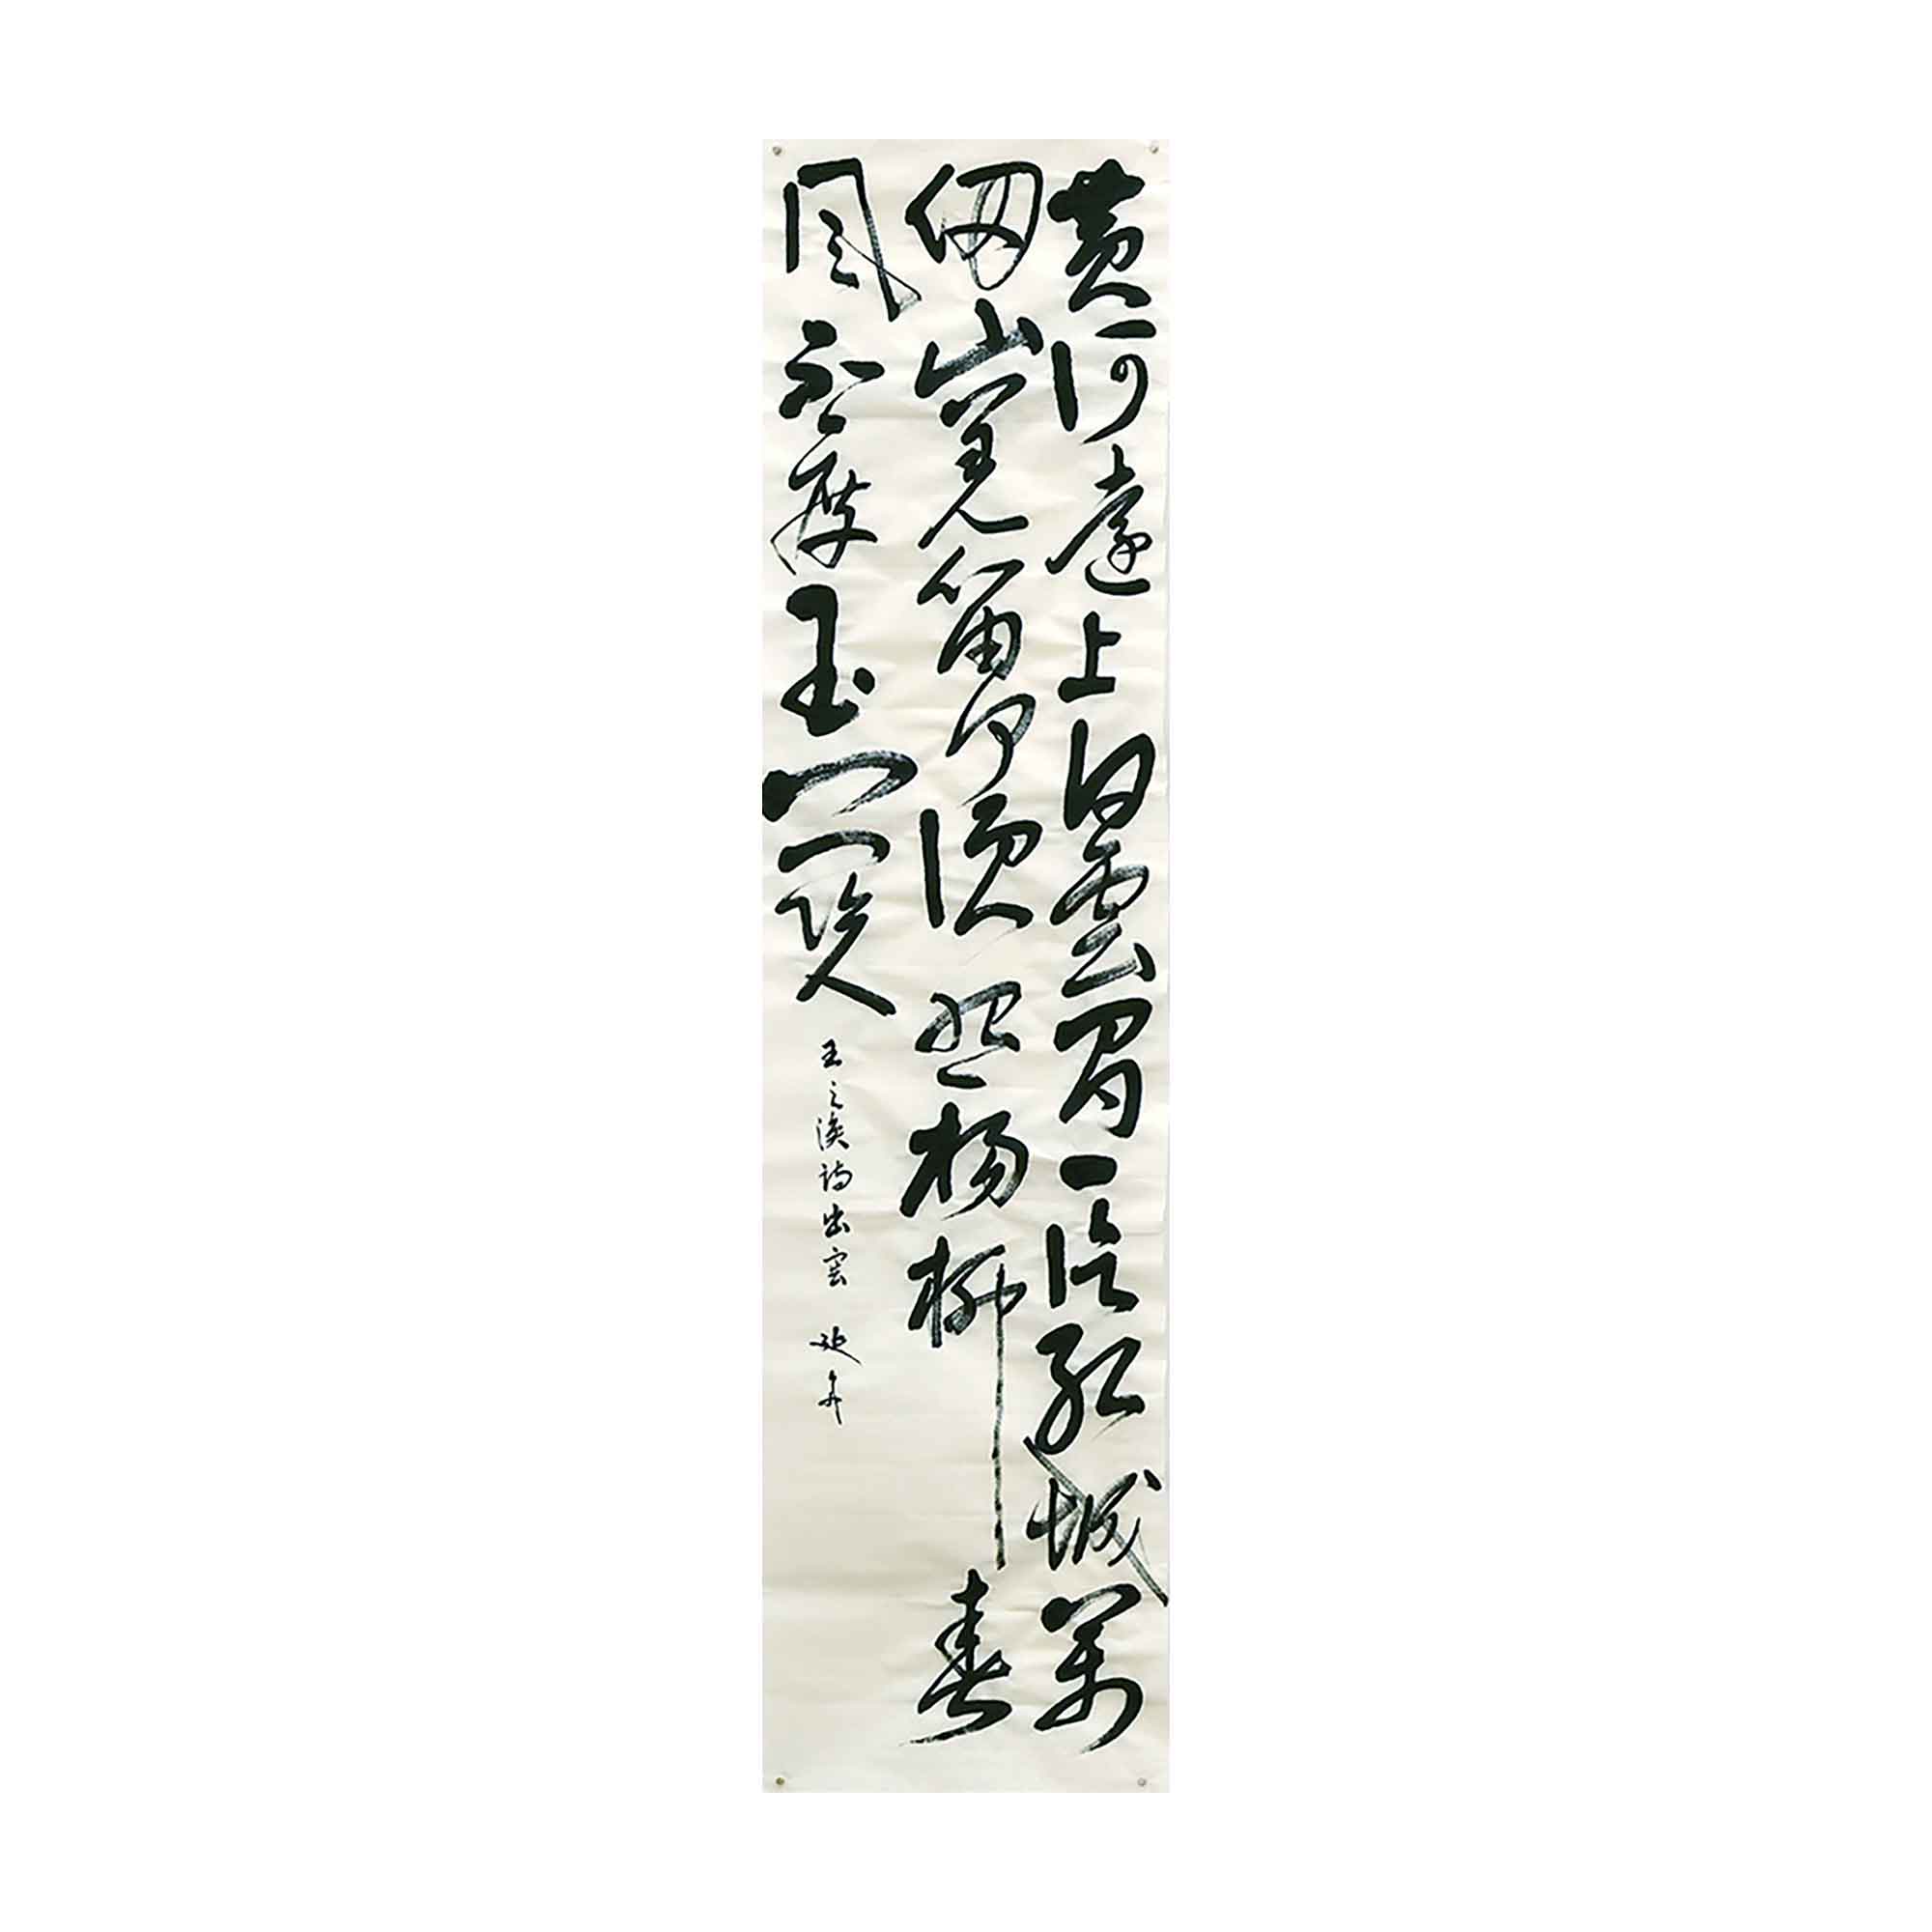 黄河遠上白雲間一片孤城萬
仞山羌笛何須怨楊柳春
風不度玉門關
王之渙詩出塞